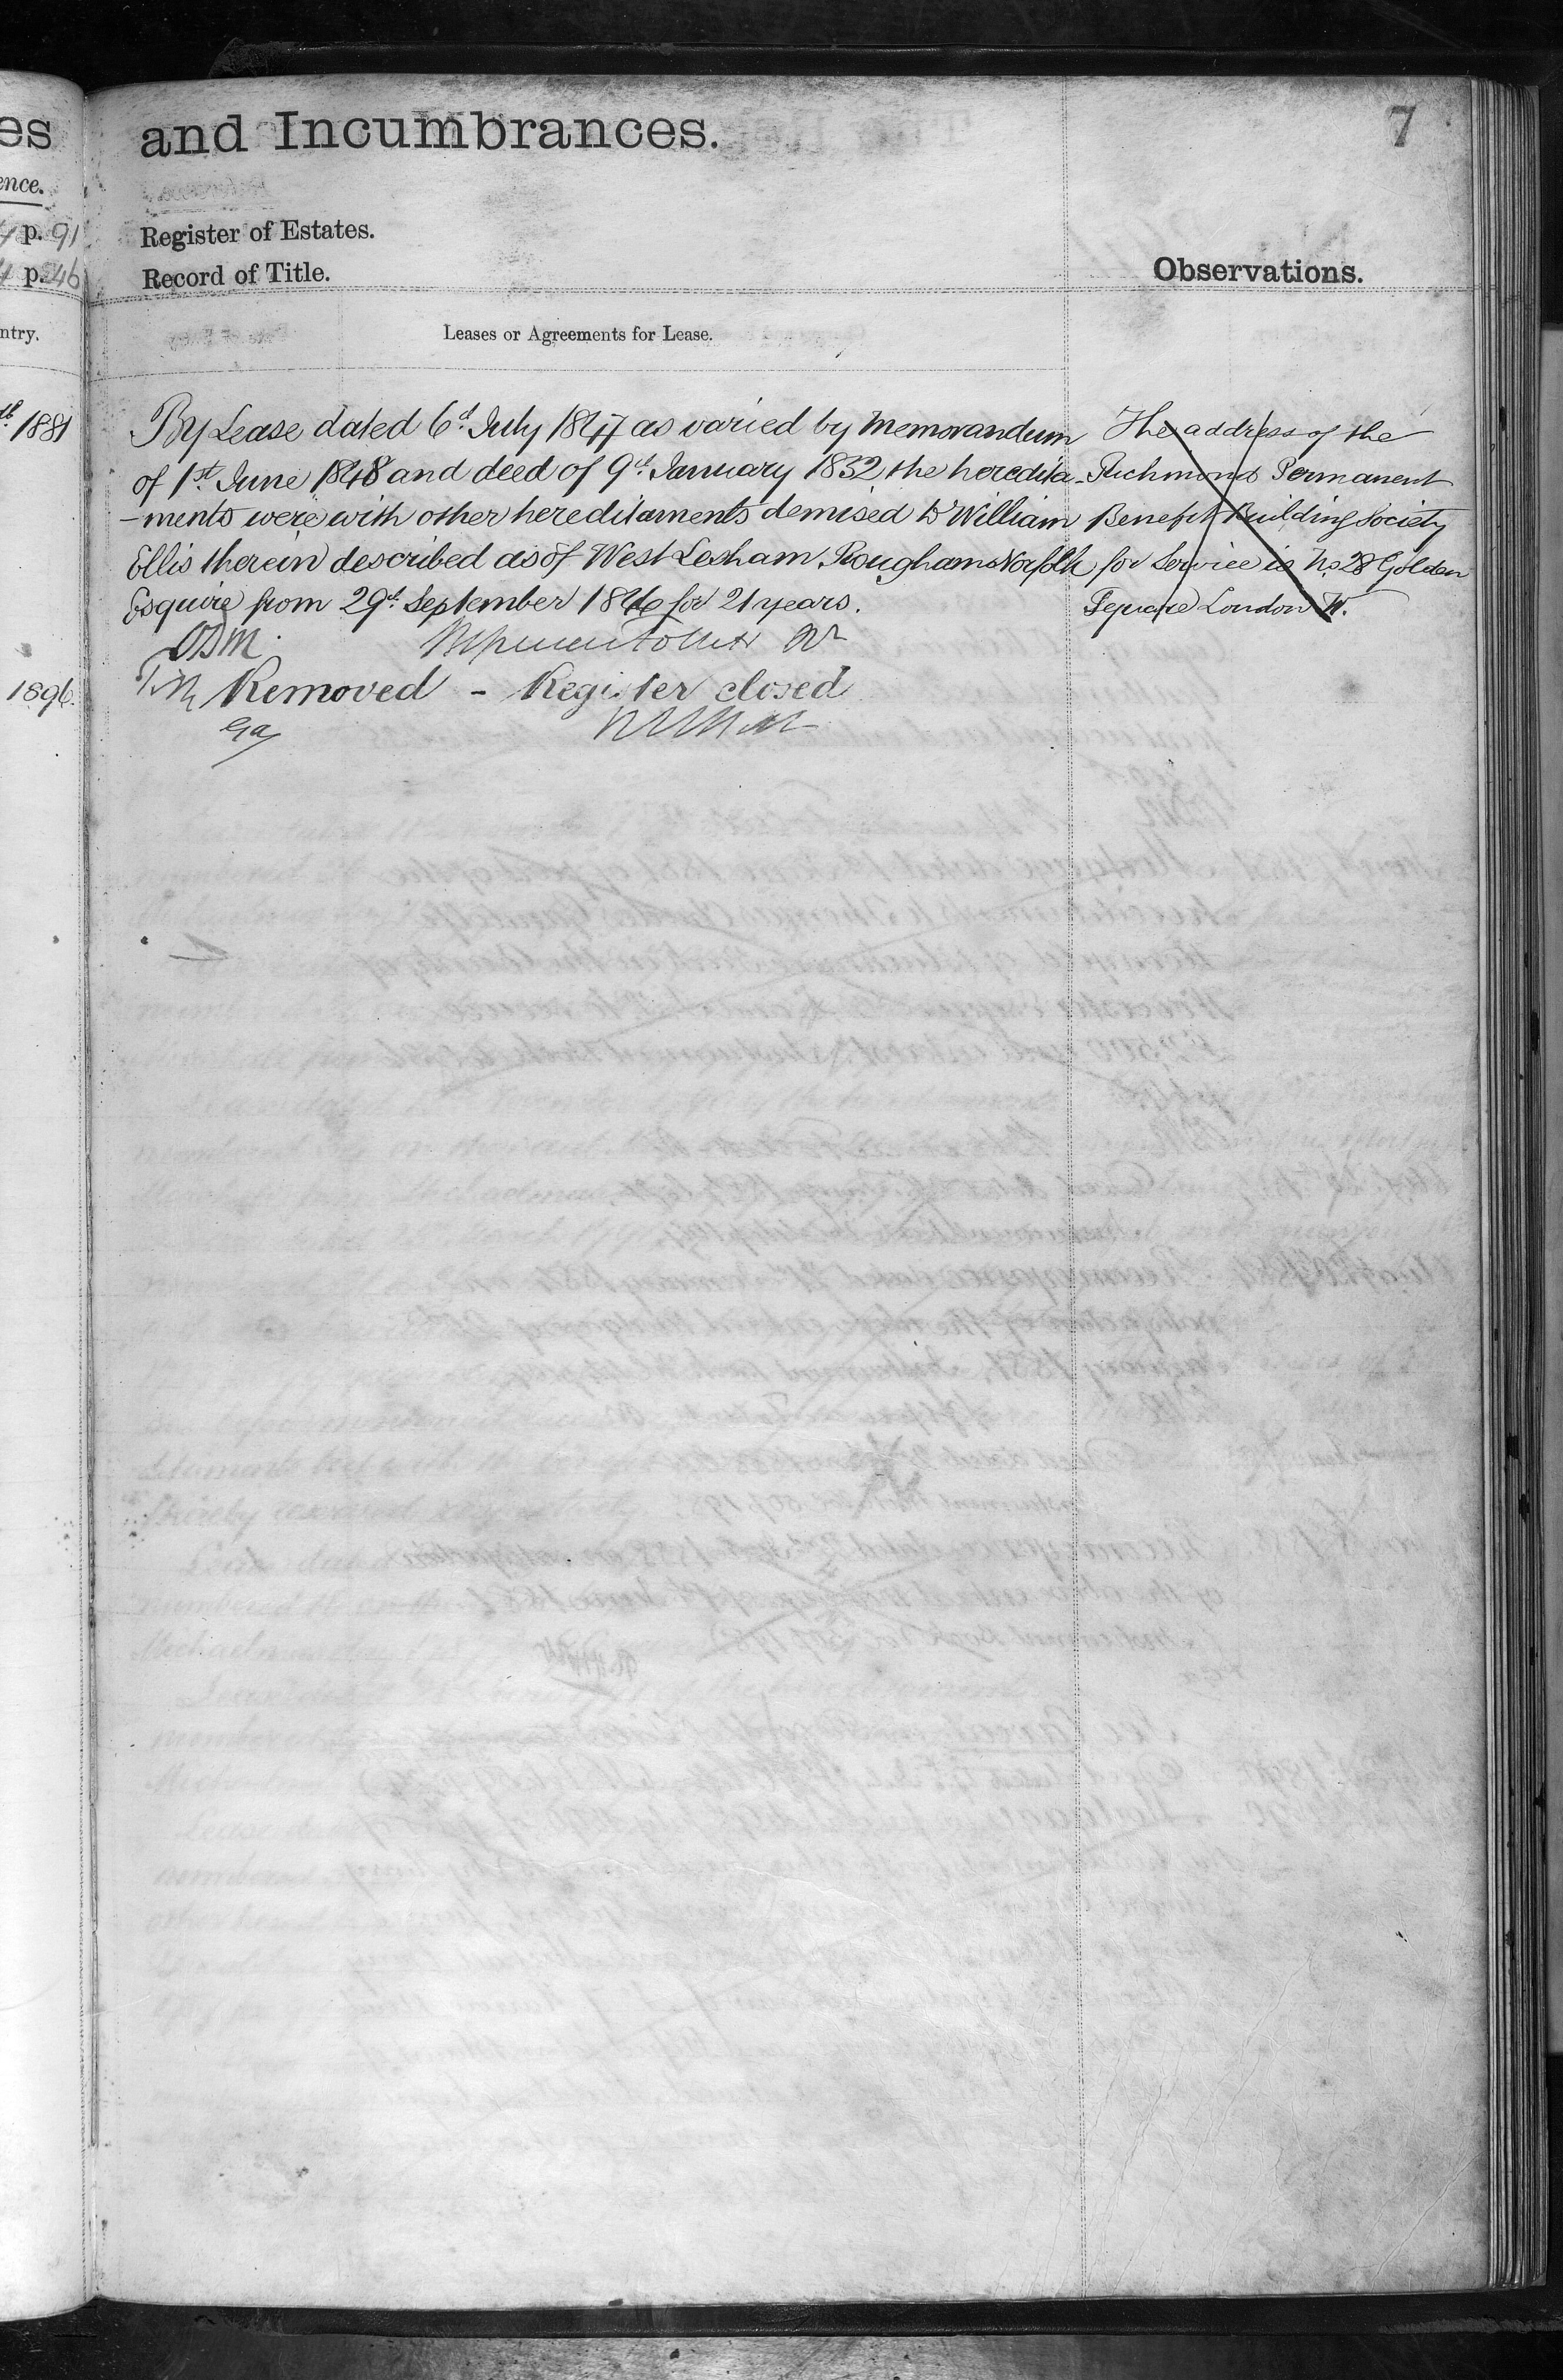 es
ence.
p. 91
p. 46
ntry.
1881
1896.
and Incumbrances.
7
Register of Estates.
Record of Title.
Observations.
Leases or Agreements for Lease.
By Lease dated 6d July 1847 as varied by Memorandum
of 1st June 1848 and deed of 9d January 1832 the heredita-
-ments were with other hereditaments demised to William
Ellis therein described as of West Lexham Rougham Norfolk
Esquire from 29d September 1846 for 21 years.
Removed - Register closed
The address of the
Richmond Permanent
Benefit Building Society
for Service is No 28 Golden
Square London W.